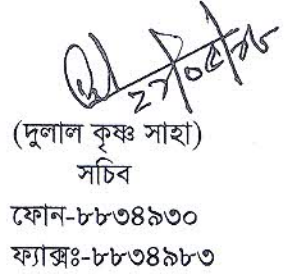 (দুলাল কৃষ্ণ সাহা)
সচিব
ফোন-৮৮৩৪৯৩০
ফ্যাক্সঃ-৮৮৩৪৯৮৩